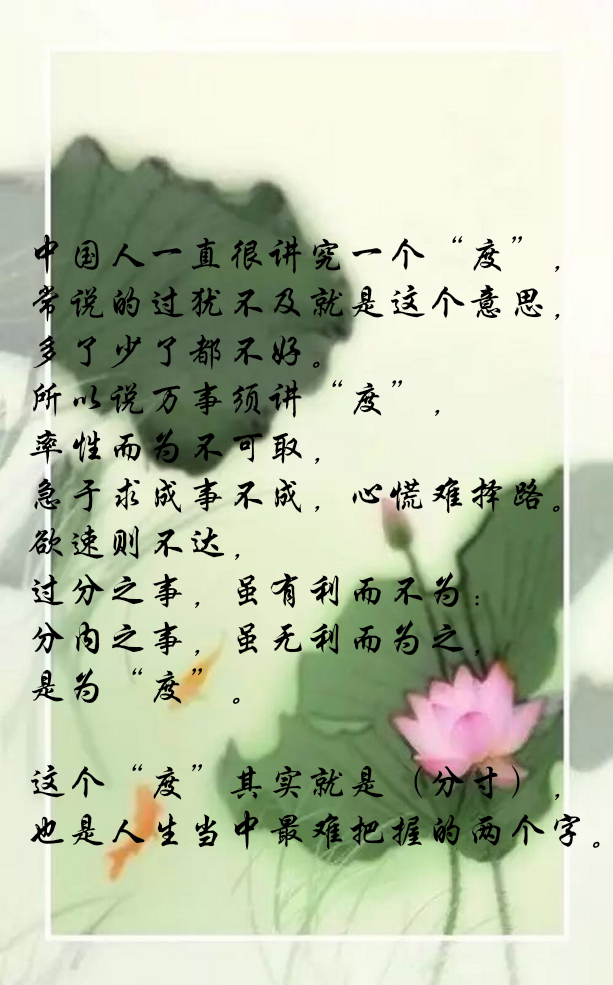 中国人一直很讲究一个“度”，
常说的过犹不及就是这个意思，
多了少了都不好。
所以说万事须讲“度”，
率性而为不可取，
急于求成事不成，心慌难择路。
欲速则不达，
过分之事，虽有利而不为；
分内之事，虽无利而为之，
是为“度”。
这个“度”其实就是（分寸），
也是人生当中最难把握的两个字。